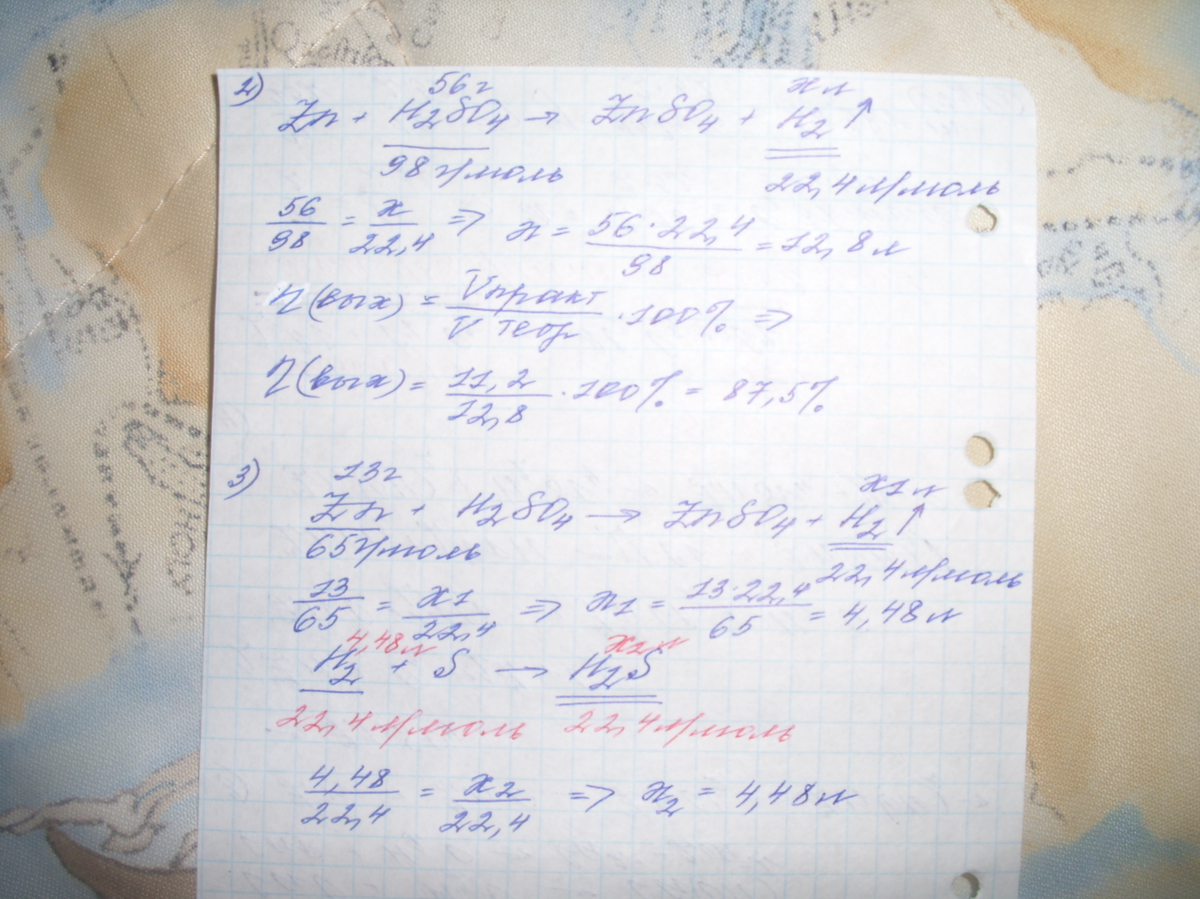 2)
56 г х л
Zn + H2SO4 → ZnSO4 + H2 ↑
98 г/моль 22,4 л/моль
56/98 = х/22,4 => х = 56·22,4/98 = 12,8 л
η (вых) = Vпракт/V теор · 100% =>
η (вых) = 11,2/12,8 · 100% = 87,5%
3)
13 г х1 л
Zn + H2SO4 → ZnSO4 + H2 ↑
65 г/моль 22,4 л/моль
13/65 = х1/22,4 => х1 = 13·22,4/65 = 4,48 л
4,48 л х2 л
H2 + S → H2S
22,4 л/моль 22,4 л/моль
4,48/22,4 = х2/22,4 => х2 = 4,48 л